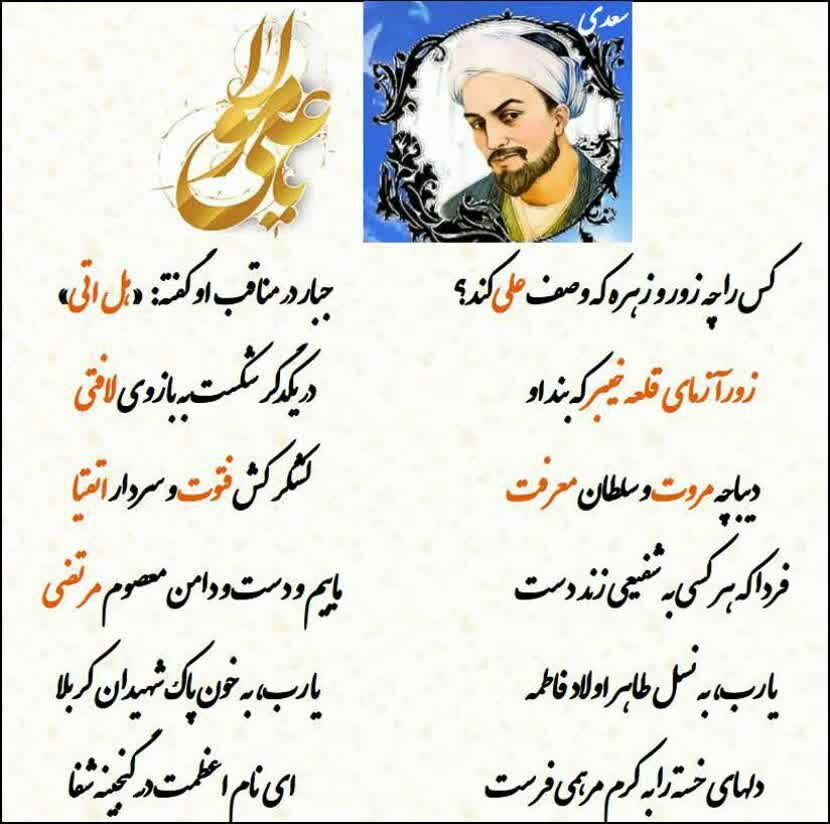 یا علی مولا
سعدی
کس را چه زور و زهره که وصف علی کند؟ جبار در مناقب او گفته: «هل اتی»
زورآزمای قلعه خیبر که بند او در یکدگر شکست به بازوی لافتی
دیباچه مروت و سلطان معرفت لشکر کش فتوت و سردار اتقیا
فردا که هر کسی به شفیعی زند دست ماییم و دست و دامن معصوم مرتضی
یا رب، به نسل طاهر اولاد فاطمه یا رب، به خون پاک شهیدان کربلا
دلهای خسته را به کرم مرهمی فرست ای نام اعظمت در گنجینه شفا